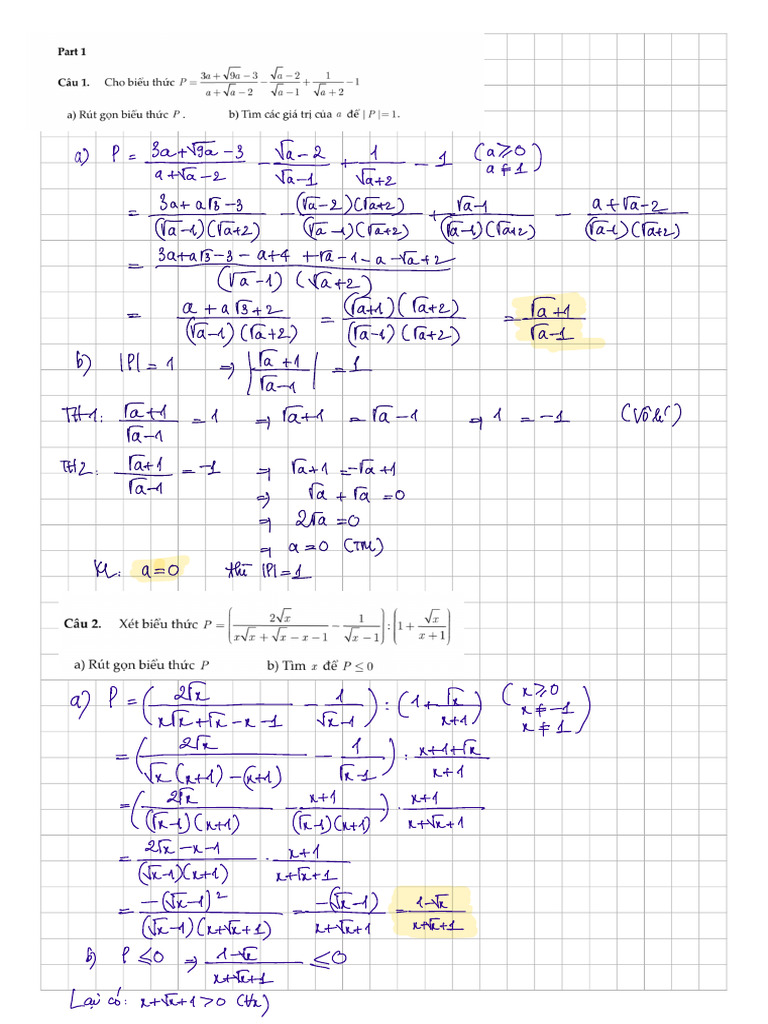 Part 1
Câu 1. Cho biểu thức P = (3a + √9a − 3)/(a + √a − 2) − (√a − 2)/(√a − 1) + 1/(√a + 2) − 1
a) Rút gọn biểu thức P. b) Tìm các giá trị của a để |P| = 1.
a) P = (3a + √9a − 3)/(a + √a − 2) − (√a − 2)/(√a − 1) + 1/(√a + 2) − 1 (a ≥ 0 a ≠ 1)
= (3a + a√3 − 3)/((√a − 1)(√a + 2)) − ((√a − 2)(√a + 2))/((√a − 1)(√a + 2)) + (√a − 1)/((√a − 1)(√a + 2)) − (a + √a − 2)/((√a − 1)(√a + 2))
= (3a + a√3 − 3 − a + 4 + √a − 1 − a − √a + 2)/((√a − 1)(√a + 2))
= (a + a√3 + 2)/((√a − 1)(√a + 2)) = ((√a + 1)(√a + 2))/((√a − 1)(√a + 2)) = (√a + 1)/(√a − 1)
b) |P| = 1 ⇒ |(√a + 1)/(√a − 1)| = 1
TH1: (√a + 1)/(√a − 1) = 1 ⇒ √a + 1 = √a − 1 ⇒ 1 = −1 (Vô lí)
TH2: (√a + 1)/(√a − 1) = −1 ⇒ √a + 1 = −√a + 1
⇒ √a + √a = 0
⇒ 2√a = 0
⇒ a = 0 (TM)
KL: a = 0 thì |P| = 1
Câu 2. Xét biểu thức P = (2√x/(x√x + √x − x − 1) − 1/(√x − 1)) : (1 + √x/(x + 1))
a) Rút gọn biểu thức P b) Tìm x để P ≤ 0
a) P = (2√x/(x√x + √x − x − 1) − 1/(√x − 1)) : (1 + √x/(x + 1)) (x ≥ 0 x ≠ −1 x ≠ 1)
= (2√x/(√x(x + 1) − (x + 1)) − 1/(√x − 1)) : (x + 1 + √x)/(x + 1)
= (2√x/((√x − 1)(x + 1)) − (x + 1)/((√x − 1)(x + 1))) · (x + 1)/(x + √x + 1)
= (2√x − x − 1)/((√x − 1)(x + 1)) · (x + 1)/(x + √x + 1)
= −(√x − 1)²/((√x − 1)(x + √x + 1)) = −(√x − 1)/(x + √x + 1) = (1 − √x)/(x + √x + 1)
b) P ≤ 0 ⇒ (1 − √x)/(x + √x + 1) ≤ 0
Lại có: x + √x + 1 > 0 (∀x)